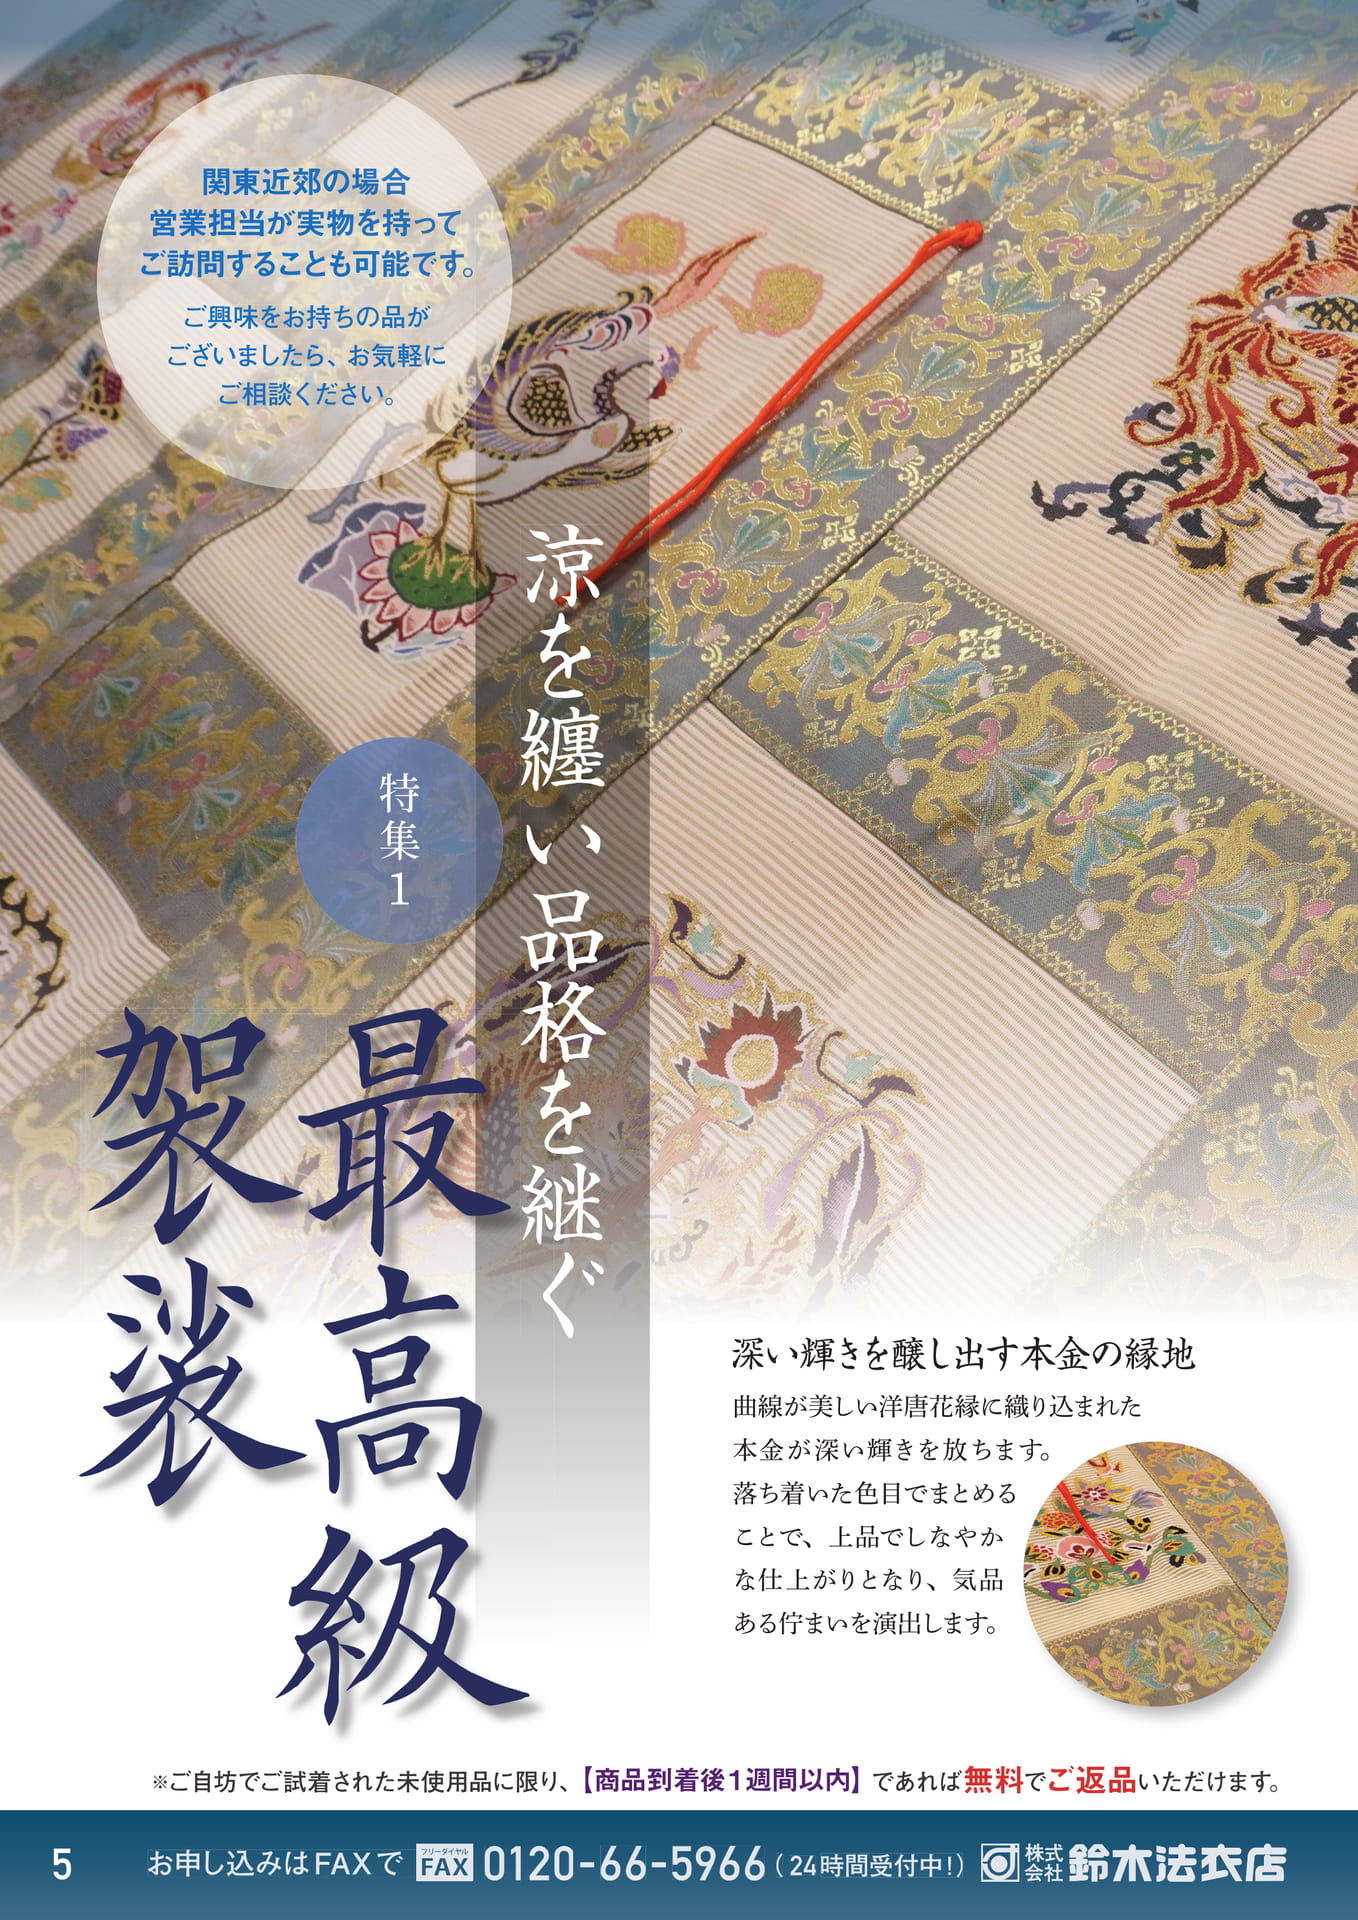 関東近郊の場合
営業担当が実物を持って
ご訪問することも可能です。
ご興味をお持ちの品が
ございましたら、お気軽に
ご相談ください。
涼を纏い品格を継ぐ
特集1
最高級
袈裟
深い輝きを醸し出す本金の縁地
曲線が美しい洋唐花縁に織り込まれた
本金が深い輝きを放ちます。
落ち着いた色目でまとめる
ことで、上品でしなやか
な仕上がりとなり、気品
ある佇まいを演出します。
※ご自坊でご試着された未使用品に限り、【商品到着後1週間以内】であれば無料でご返品いただけます。
5 お申し込みはFAXで フリーダイヤル FAX 0120-66-5966(24時間受付中!) 株式会社 鈴木法衣店